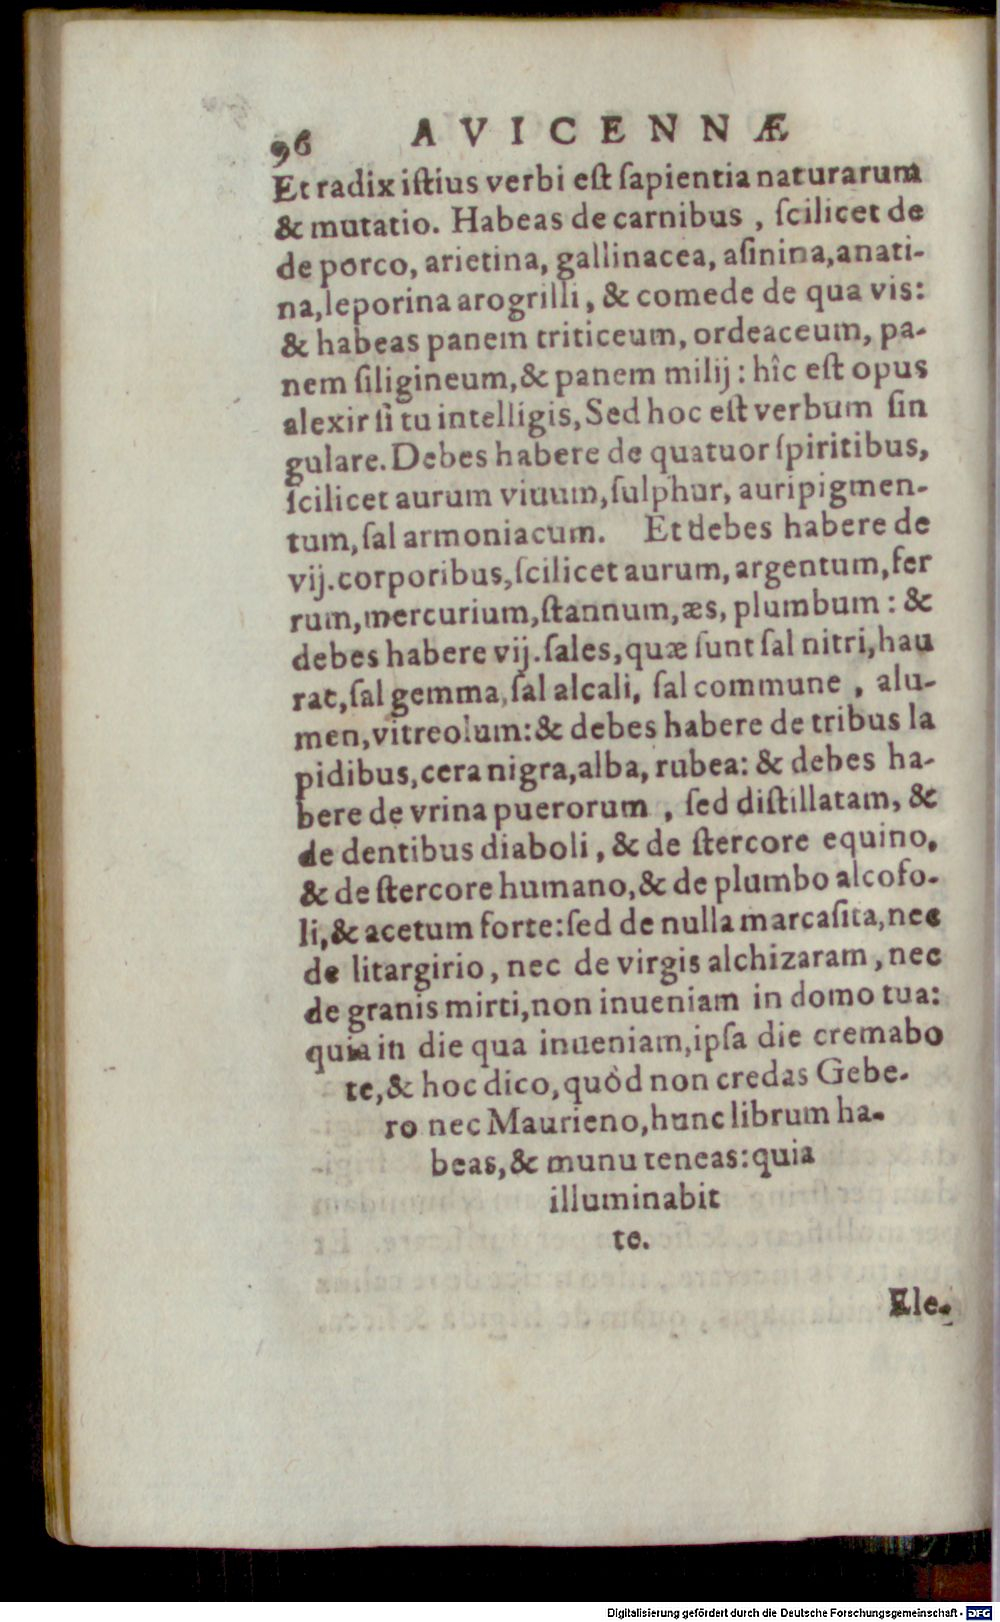 96 AVICENNÆ
Et radix iſtius verbi eſt ſapientia naturarum
& mutatio. Habeas de carnibus , ſcilicet de
de porco, arietina, gallinacea, aſinina,anati-
na,leporina arogrilli, & comede de qua vis:
& habeas panem triticeum, ordeaceum, pa-
nem ſiligineum,& panem milij: hîc eſt opus
alexir ſi tu intelligis, Sed hoc eſt verbum ſin
gulare. Debes habere de quatuor ſpiritibus,
ſcilicet aurum viuum,ſulphur, auripigmen-
tum,ſal armoniacum. Et debes habere de
vij.corporibus,ſcilicet aurum, argentum,fer
rum,mercurium,ſtannum,æs, plumbum: &
debes habere vij.ſales,quæ ſunt ſal nitri,hau
rac,ſal gemma,ſal alcali, ſal commune , alu-
men,vitreolum:& debes habere de tribus la
pidibus,cera nigra,alba, rubea: & debes ha-
bere de vrina puerorum , ſed diſtillatam, &
de dentibus diaboli, & de ſtercore equino,
& de ſtercore humano,& de plumbo alcofo-
li,& acetum forte:ſed de nulla marcaſita,nec
de litargirio, nec de virgis alchizaram, nec
de granis mirti,non inueniam in domo tua:
quia in die qua inueniam,ipſa die cremabo
te,& hoc dico,quòd non credas Gebe-
ro nec Maurieno,hunc librum ha-
beas,& munu teneas:quia
illuminabit
te.
Ele-
Digitalisierung gefördert durch die Deutsche Forschungsgemeinschaft - DFG